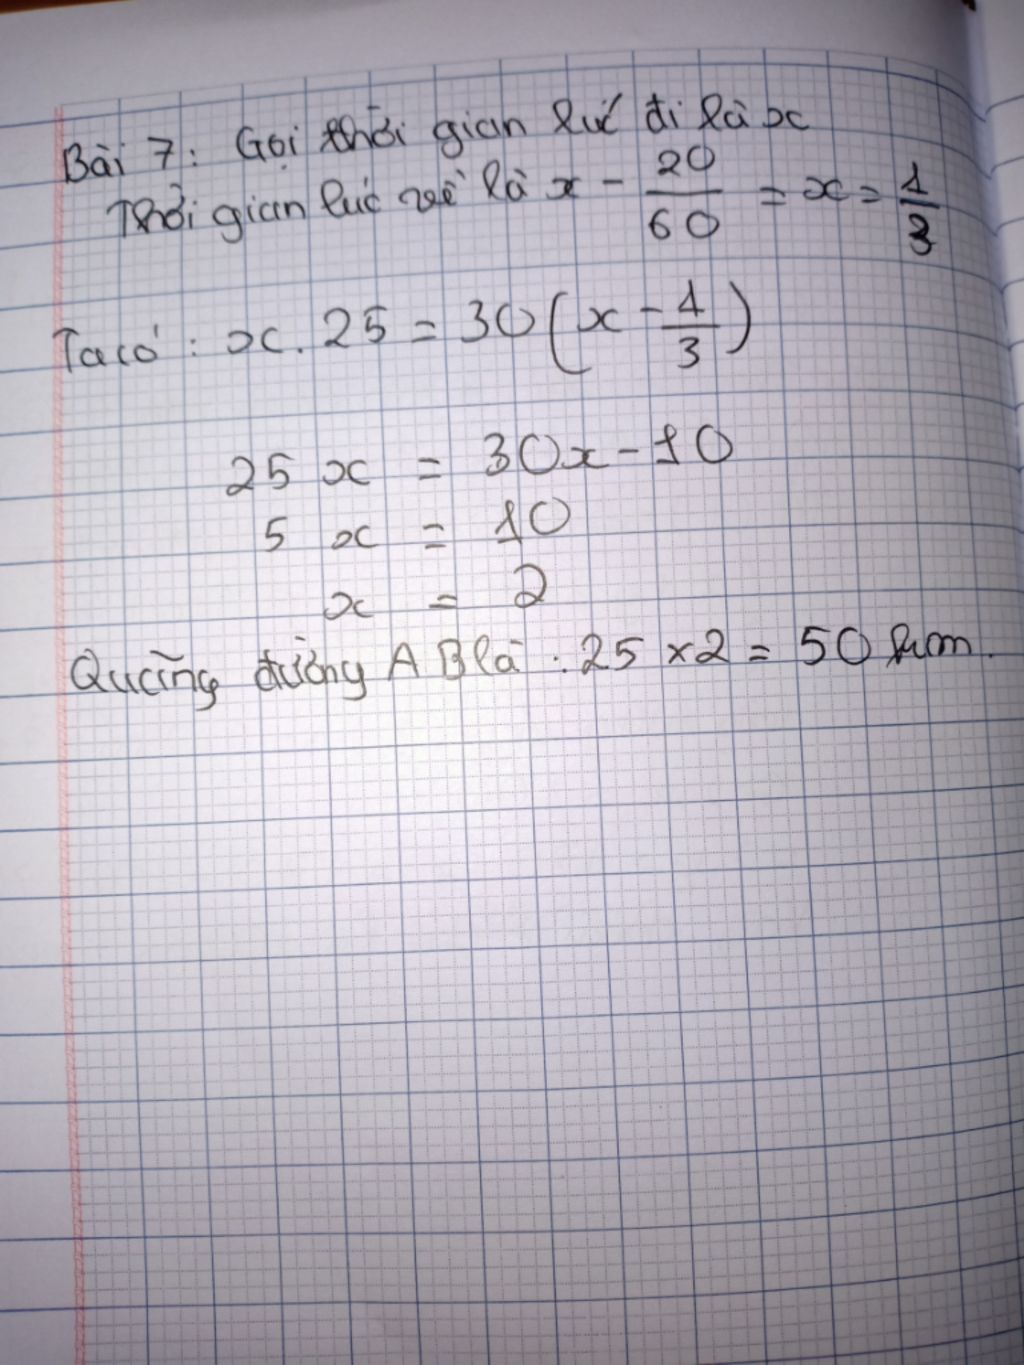 Bài 7: Gọi thời gian lúc đi là x
Thời gian lúc về là x - 20/60 = x = 1/3
Ta có: x. 25 = 30(x - 1/3)
25 x = 30x - 10
5 x = 10
x = 2
Quãng đường AB là: 25 × 2 = 50 km.